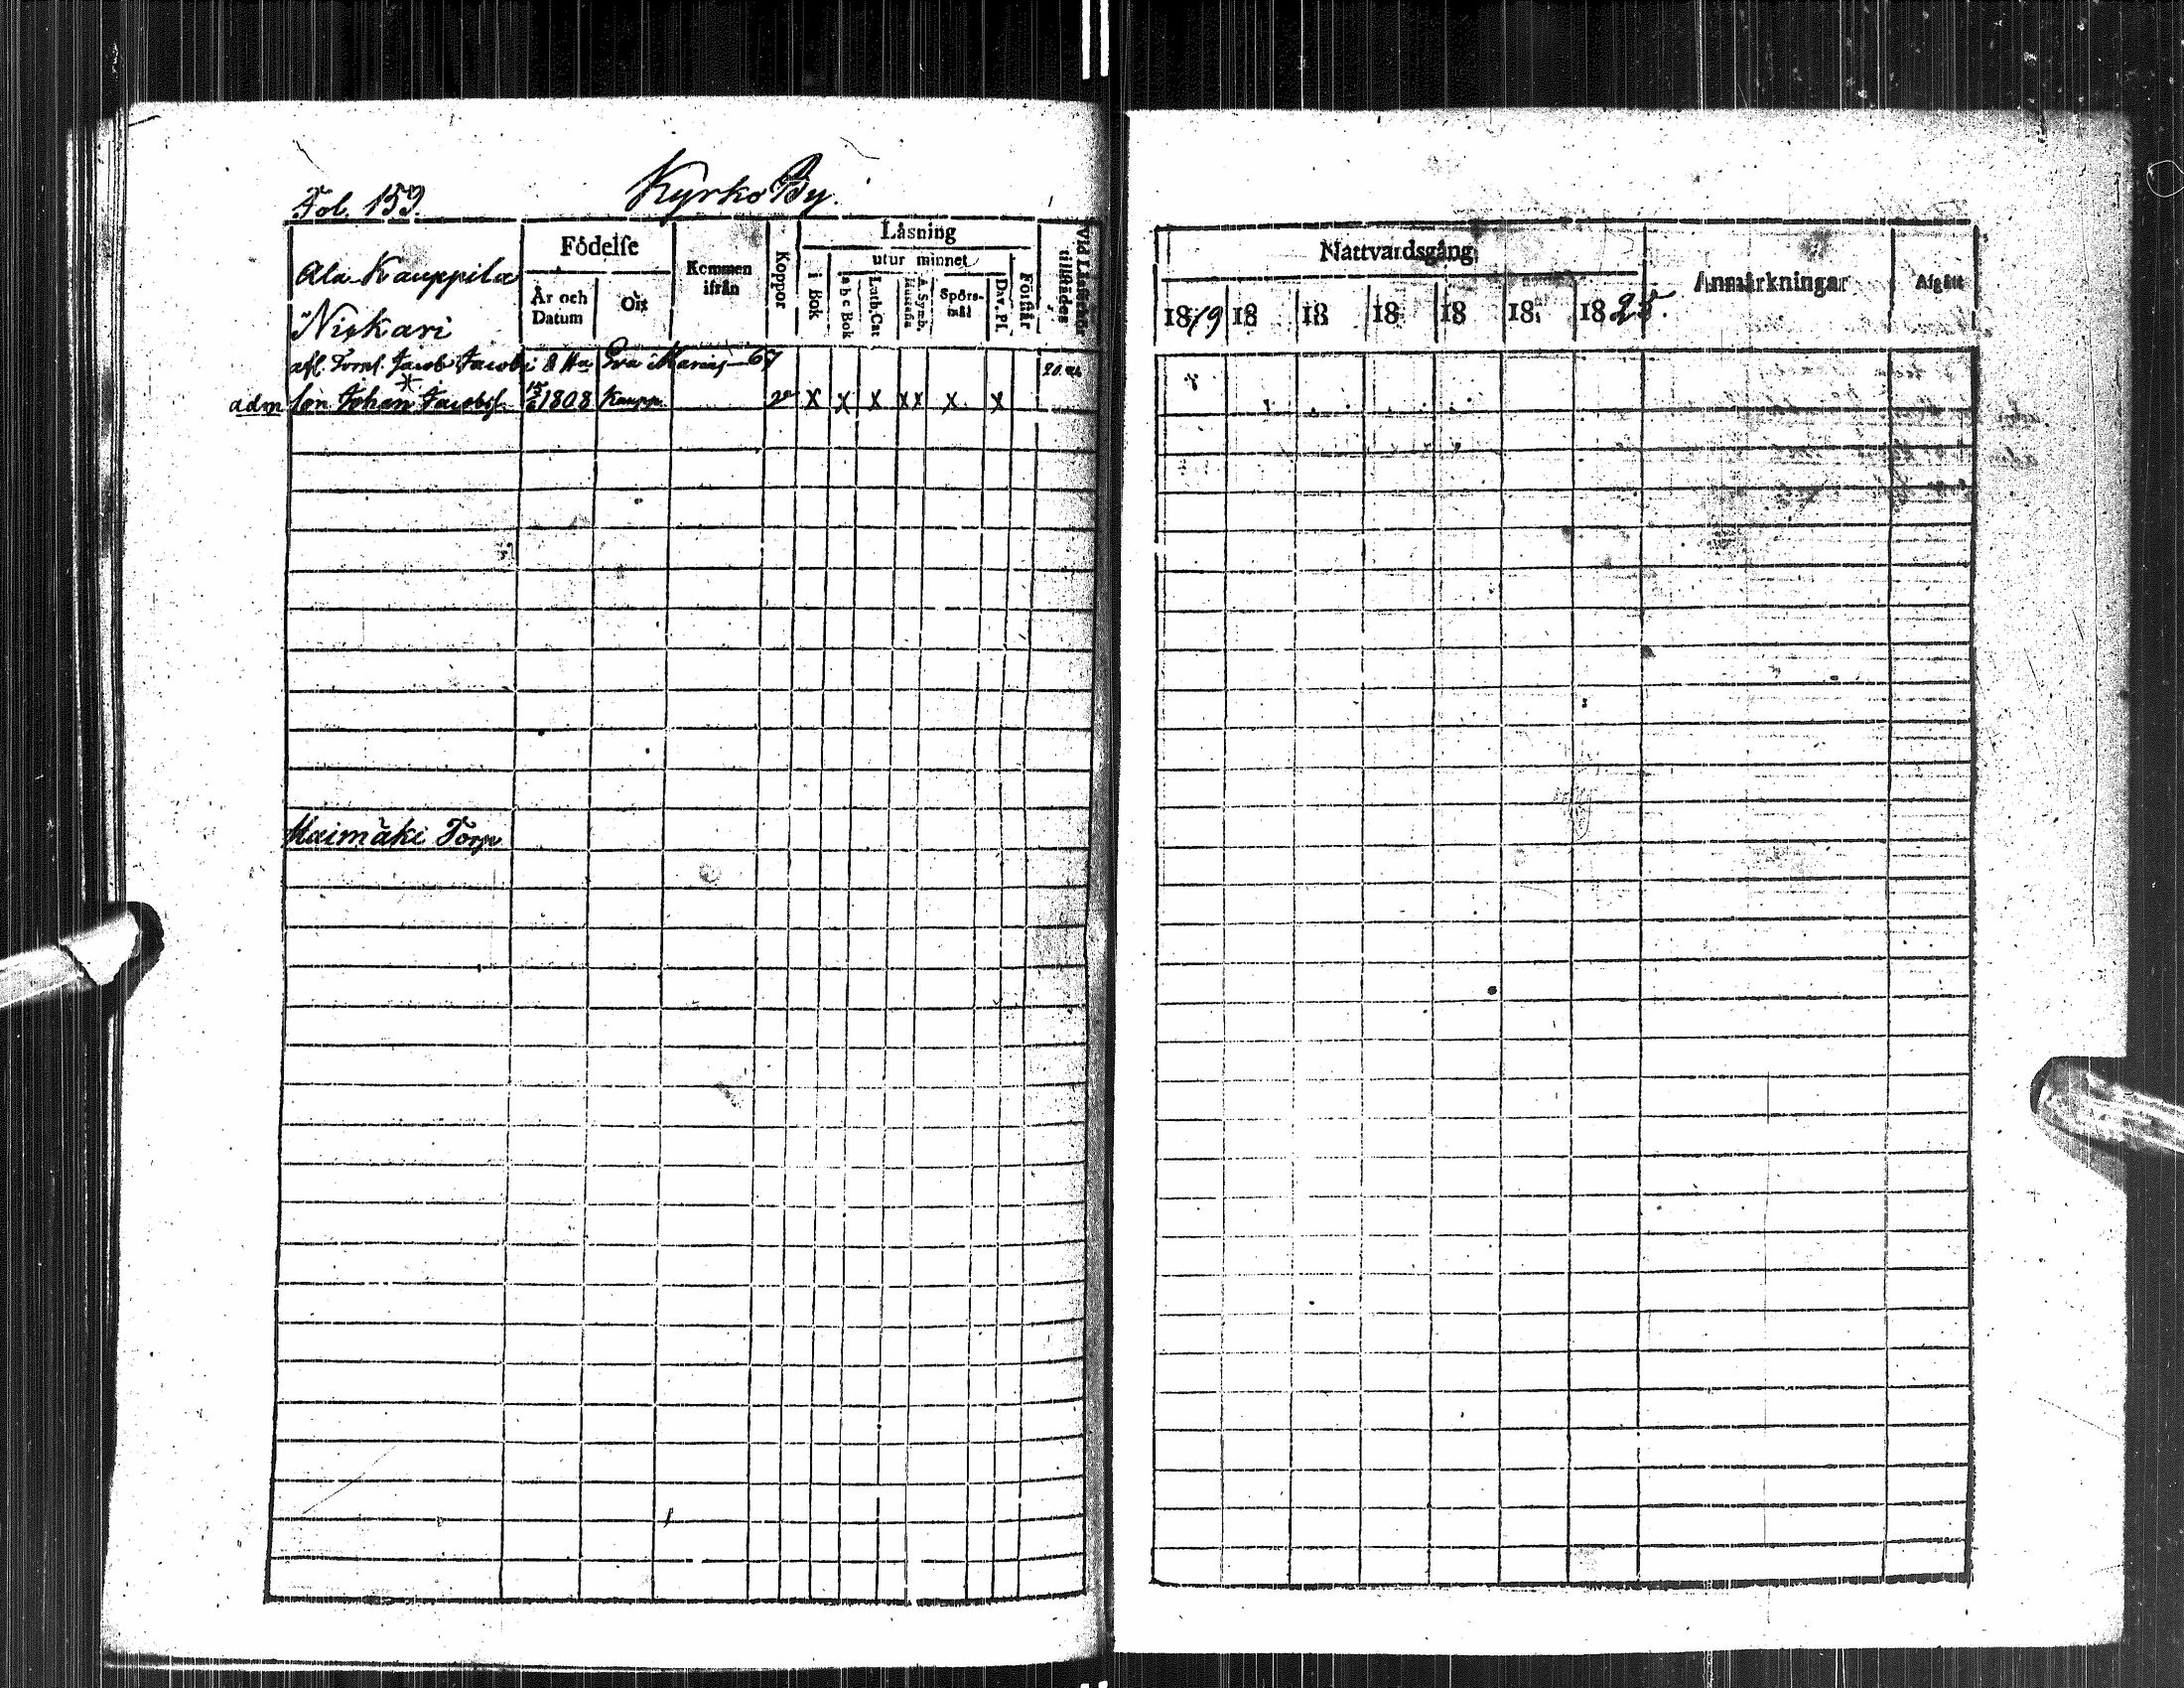 Fol. 153.
Kyrko By.
Ala Kauppila
Niskari
Födelse
År och Datum
Ort
Kommen ifrån
Koppor
Läsning
i Bok
utur minnet
a b c Bok
Luth. Cat
A. Symb. Hustafla
Spörsmål
Dav. Ps.
Förstår
Vid Läsförhör tillstädes
afl. Torp. Jacob Jacobs Eva Maria 67
adm Son Johan Jacobss. 15/6 1808 Kaupp. X X X XX X X
Maimäki Torp
Nattvardsgång
1819 18 18 18 18 18 1825.
Anmärkningar
Afgått